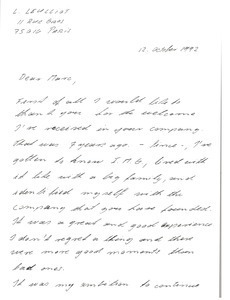 11 Rue
75016 Paris
12 October 1992
Dear Marc,
First of all I would like to
thank you for the welcome
I've received in your company.
That was 7 years ago. - Since, I've
gotten to know I.M.G, lived with
it like with a big family, and
identified myself with the
company that you have founded.
It was a great and good experience
I don't regret a thing and there
were more good moments than
bad ones.
It was my ambition to continue